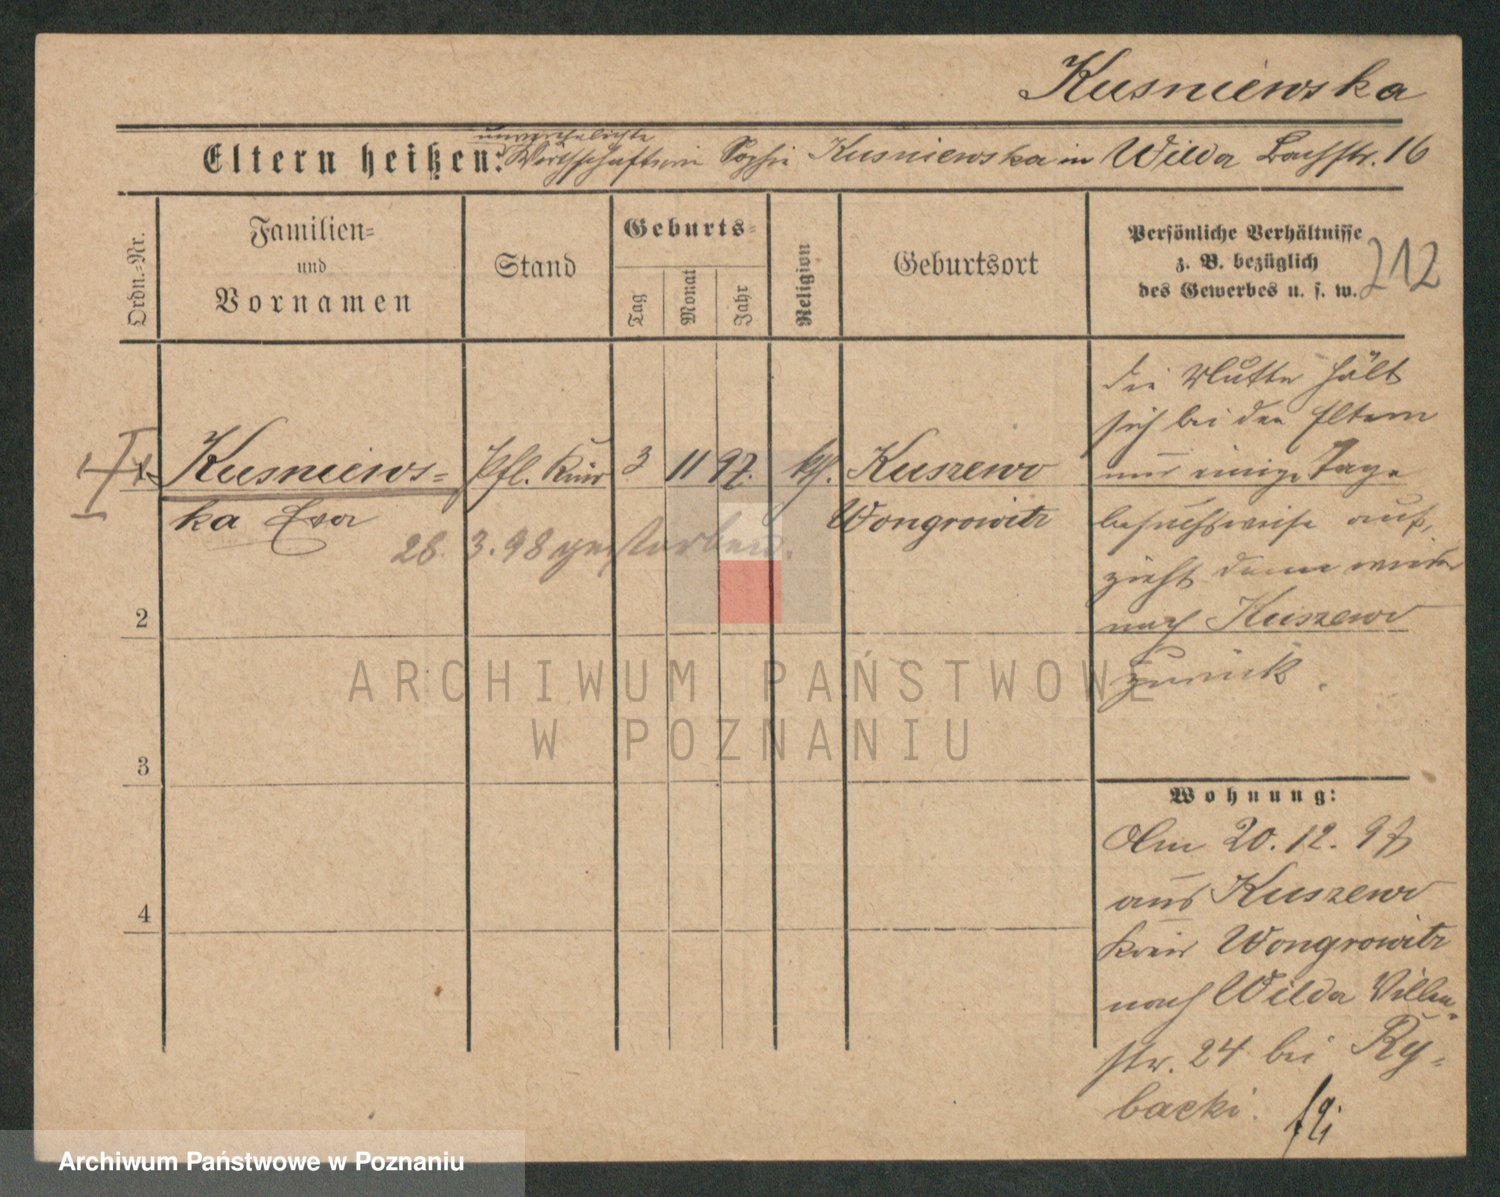 Kusniewska
unverehelichte
Eltern heißen: Wirthschafterin Sophie Kusniewska in Wilda Bachstr. 16
Ordn.-Nr.
Familien-
und
Vornamen
Stand
Geburts-
Tag
Monat
Jahr
Religion
Geburtsort
Persönliche Verhältnisse
z. B. bezüglich
des Gewerbes u. s. w.
212
1
Kusniews-
ka Eva
Pfl. Kind
3
11
97.
kth.
Kuszewo
Wongrowitz
28. 3. 98 gestorben.
die Mutter hält
sich bei den Eltern
nur einige Tage
besuchsweise auf,
zieht dann wieder
nach Kuszewo
zurück.
2
3
4
Wohnung:
Am 20. 12. 97
aus Kuszewo
Kreis Wongrowitz
nach Wilda Villen-
str. 24 bei Ry-
backi.
ARCHIWUM PAŃSTWOWE
W POZNANIU
Archiwum Państwowe w Poznaniu